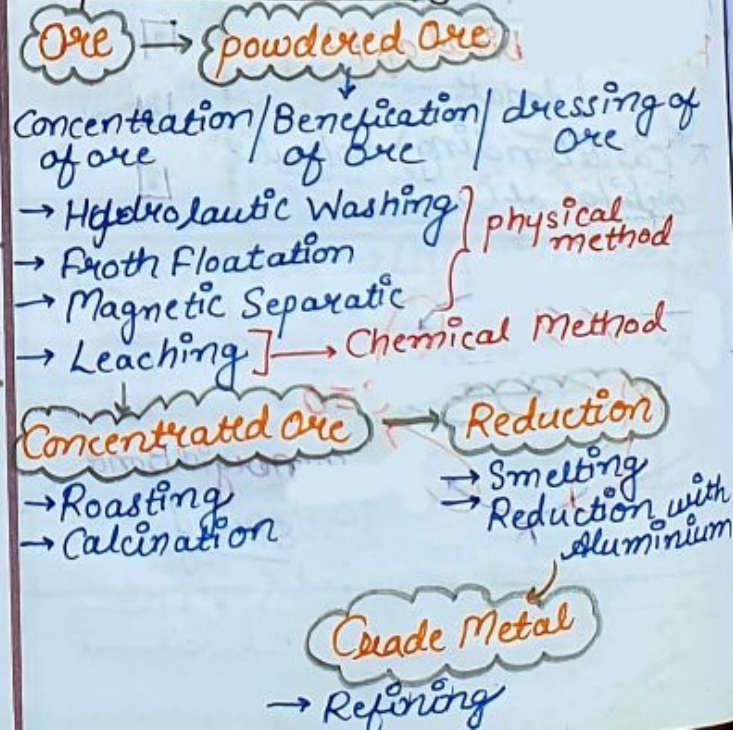 Ore → powdered Ore
Concentration / Benefication / dressing of
of ore of Ore Ore
→ Hydrolautic Washing
→ Froth Floatation
→ Magnetic Separatic
physical method
→ Leaching → Chemical Method
Concentrated Ore → Reduction
→ Roasting
→ Calcination
→ Smelting
→ Reduction with
Aluminium
Cruade Metal
→ Refining